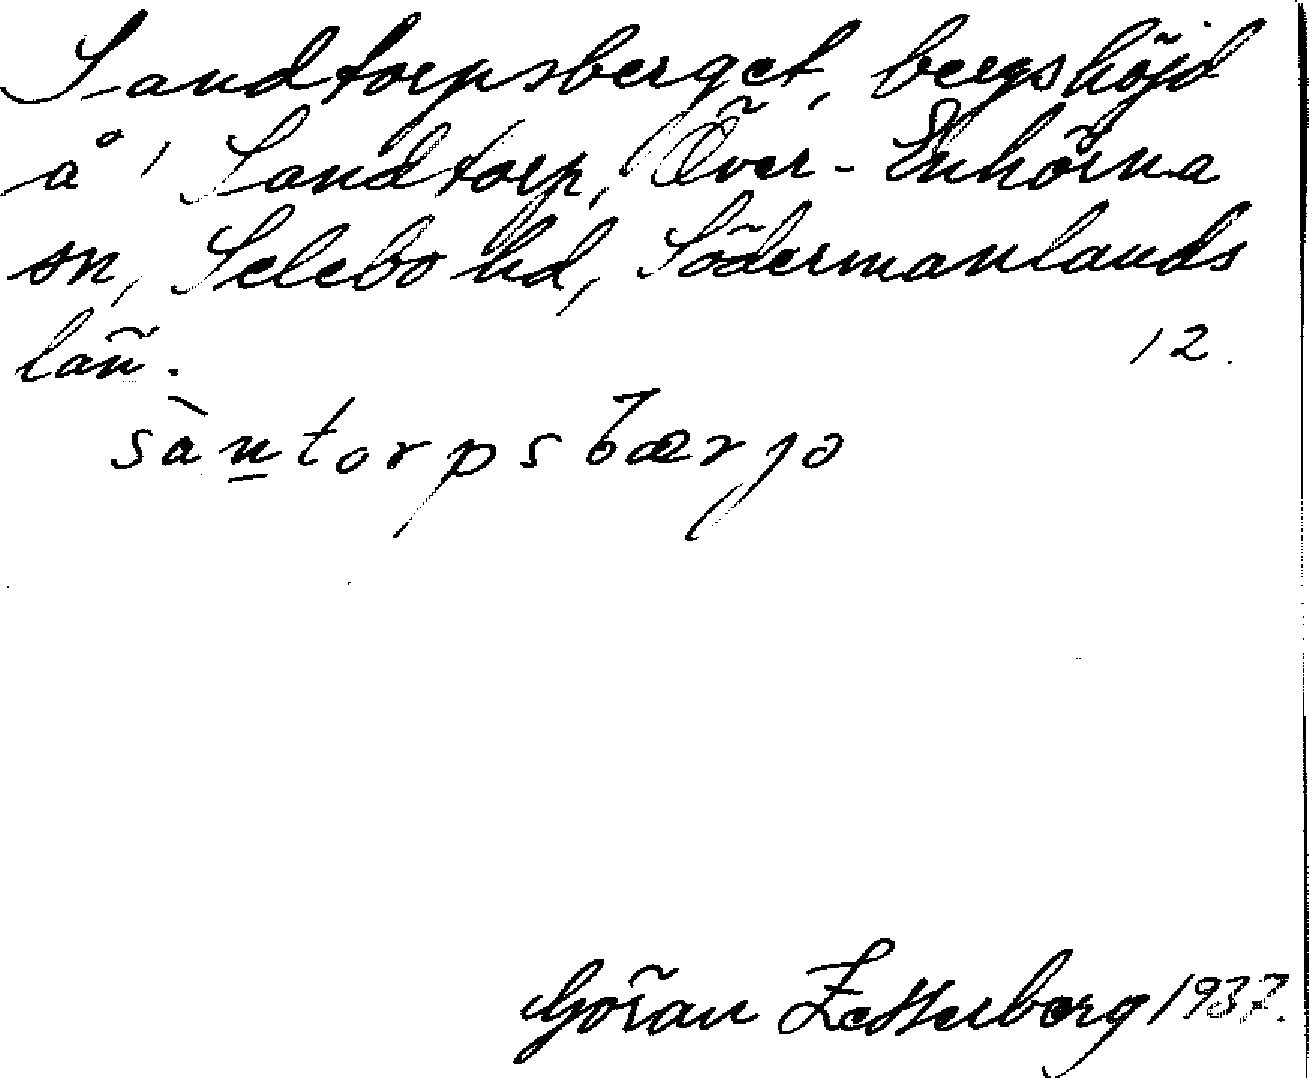 Sandtorpsberget, bergshöjd
å 1 Sandtorp, Över-Enhörna
sn, Selebo hd, Södermanlands
län.
12.
sàn̲torpsbærjə
Göran Zetterberg 1937.